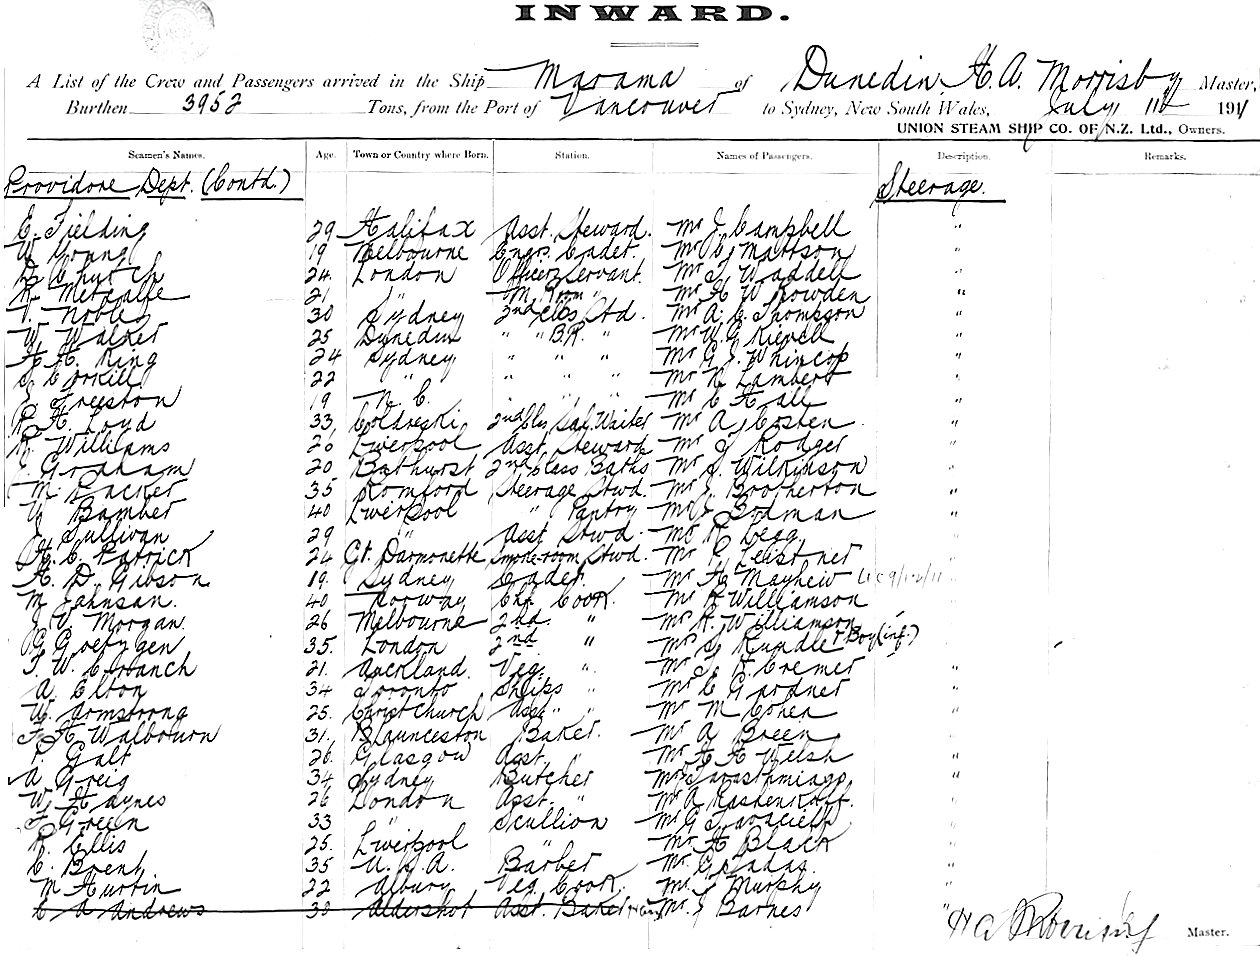 INWARD.
A List of the Crew and Passengers arrived in the Ship Marama of Dunedin, H. A. Morrisby Master,
Burthen 3952 Tons, from the Port of Vancouver to Sydney, New South Wales, July 11th 1911
UNION STEAM SHIP CO. OF N.Z. Ltd., Owners.
Seamen's Names. Age. Town or Country where Born. Station. Names of Passengers. Description. Remarks.
Providore Dept. (Contd.) Steerage.
E. Fielding 29 Halifax Asst. Steward. Mr J Campbell "
W Young 19 Melbourne Engrs. Cadet. Mr C Mattson "
Church 24 London Officers Servant. Mr Waddell "
Metcalfe 21 " M. Room " Mr H W Bowden "
Nobles 30 Sydney 2nd Cls Std. Mr A. C. Thompson "
W. Walker 25 Dunedin " " B.R. " Mr W G "
H. H. King 24 Sydney " " " Mr G J Whincop "
Corkill 22 " " " " Mr Lambert "
Freeston 19 N. C. " " " Mr C Hall "
H. Loyd 33 2nd Cls Sal. Waiter Mr A "
R Williams 26 Liverpool Asst. Steward Mr Rodger "
Graham 20 Bathurst 2nd Class Baths Mr J. Wilkinson "
M. Packer 35 Romford Steerage Stwd. Mr J. Brotherton "
W Bamber 40 Liverpool " Pantry Mr Bodman "
J Sullivan 29 " Asst Stwd. Mr Legg "
H. C. Patrick 24 Gt. Smoke-room Stwd. Mr Leistner "
H. D. Gibson 19. Sydney Cadet. Mr H Mayhew "
M Johnsan. 40 Norway Chf. Cook. Mr Williamson "
V. Morgan. 26 Melbourne 2nd. " Mr H. Williamson "
35. London 2nd " Mr Rundle & Boy (inf.)
F. W. 21. Auckland. Veg. " Mr Cremer "
A. Elton 34 Toronto Ships " Mr C Gardner "
W. Armstrong 25. Christchurch Asst " " Mr M Cohen "
F H Walbourn 31. Launceston Baker. Mr A Breen "
P. Galt 26. Glasgow Asst. " Mr H H Welsh "
A Greig 34 Sydney Butcher Mr "
W. Haynes 26 London Asst. " Mr A "
F Green 33 " Scullion Mr G "
R. Ellis 25. Liverpool " Mr H Black "
C. Brent 35 U. S. A. Barber Mr. "
M Hurtin 22 Albury Veg. Cook. Mr. J Murphy "
C A Andrews 38 Aldershot Asst. Baker Mr. J Barnes "
H A Morrisby Master.